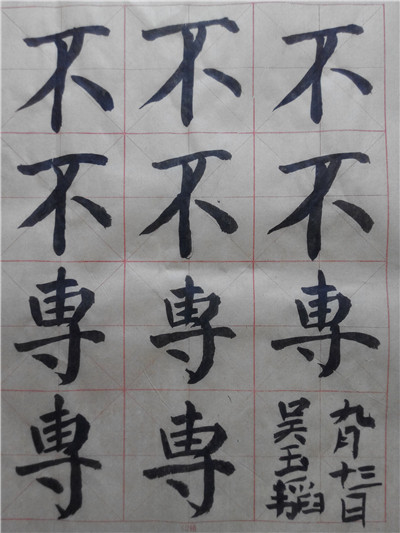 不不不
不不不
専専専
専専
九月十三日
吴玉韬